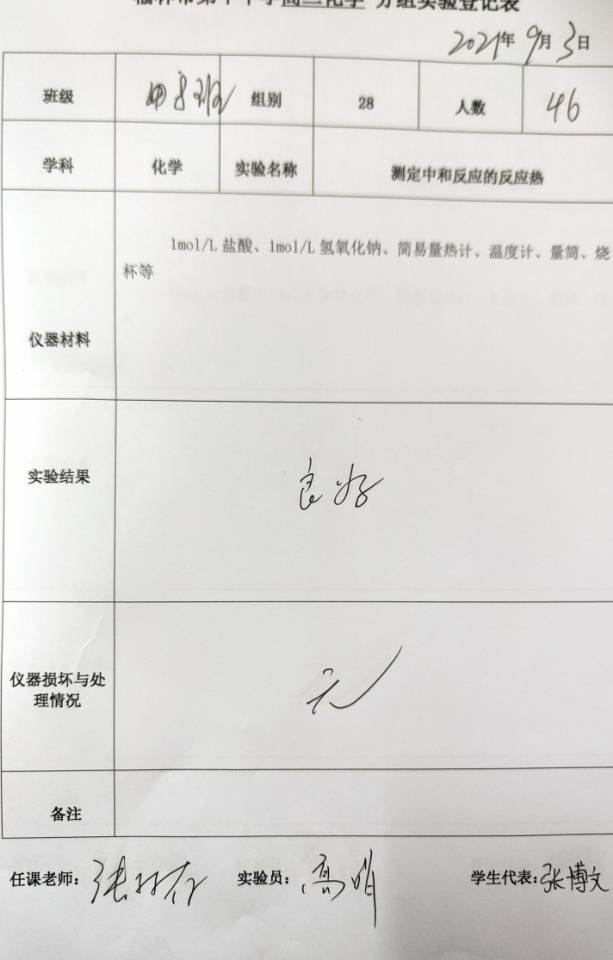 分组实验登记表
2021年9月3日
班级 组别 28 人数 46
学科 化学 实验名称 测定中和反应的反应热
仪器材料 1mol/L 盐酸、1mol/L 氢氧化钠、简易量热计、温度计、量筒、烧
杯等
实验结果 良好
仪器损坏与处
理情况 无
备注
任课老师: 实验员: 学生代表:张博文